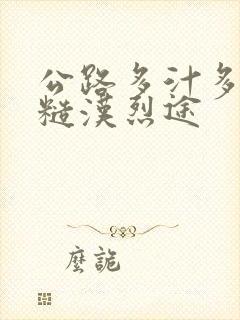 公路多汁多
糙漢烈途
麼詭